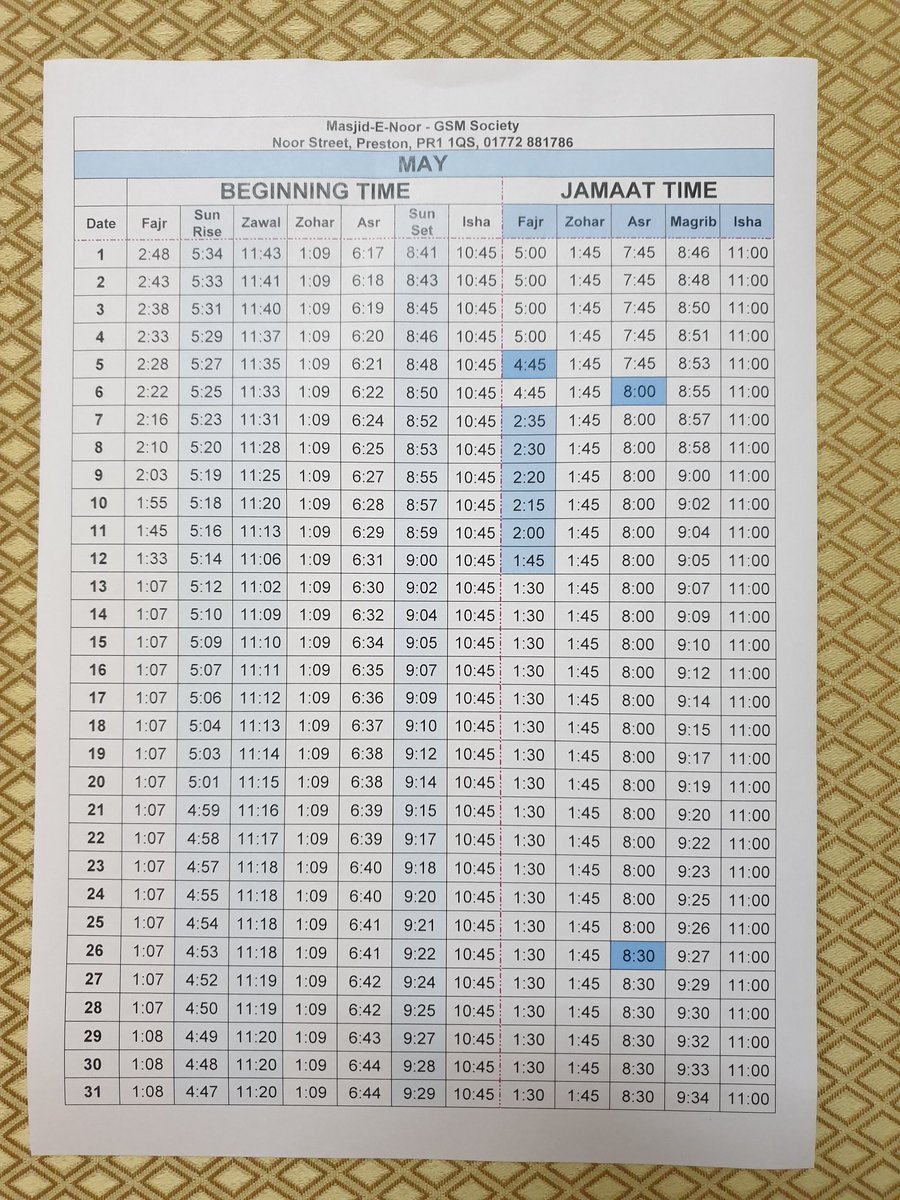 Masjid-E-Noor - GSM Society
Noor Street, Preston, PR1 1QS, 01772 881786
MAY
BEGINNING TIME JAMAAT TIME
Date Fajr Sun Rise Zawal Zohar Asr Sun Set Isha Fajr Zohar Asr Magrib Isha
1 2:48 5:34 11:43 1:09 6:17 8:41 10:45 5:00 1:45 7:45 8:46 11:00
2 2:43 5:33 11:41 1:09 6:18 8:43 10:45 5:00 1:45 7:45 8:48 11:00
3 2:38 5:31 11:40 1:09 6:19 8:45 10:45 5:00 1:45 7:45 8:50 11:00
4 2:33 5:29 11:37 1:09 6:20 8:46 10:45 5:00 1:45 7:45 8:51 11:00
5 2:28 5:27 11:35 1:09 6:21 8:48 10:45 4:45 1:45 7:45 8:53 11:00
6 2:22 5:25 11:33 1:09 6:22 8:50 10:45 4:45 1:45 8:00 8:55 11:00
7 2:16 5:23 11:31 1:09 6:24 8:52 10:45 2:35 1:45 8:00 8:57 11:00
8 2:10 5:20 11:28 1:09 6:25 8:53 10:45 2:30 1:45 8:00 8:58 11:00
9 2:03 5:19 11:25 1:09 6:27 8:55 10:45 2:20 1:45 8:00 9:00 11:00
10 1:55 5:18 11:20 1:09 6:28 8:57 10:45 2:15 1:45 8:00 9:02 11:00
11 1:45 5:16 11:13 1:09 6:29 8:59 10:45 2:00 1:45 8:00 9:04 11:00
12 1:33 5:14 11:06 1:09 6:31 9:00 10:45 1:45 1:45 8:00 9:05 11:00
13 1:07 5:12 11:02 1:09 6:30 9:02 10:45 1:30 1:45 8:00 9:07 11:00
14 1:07 5:10 11:09 1:09 6:32 9:04 10:45 1:30 1:45 8:00 9:09 11:00
15 1:07 5:09 11:10 1:09 6:34 9:05 10:45 1:30 1:45 8:00 9:10 11:00
16 1:07 5:07 11:11 1:09 6:35 9:07 10:45 1:30 1:45 8:00 9:12 11:00
17 1:07 5:06 11:12 1:09 6:36 9:09 10:45 1:30 1:45 8:00 9:14 11:00
18 1:07 5:04 11:13 1:09 6:37 9:10 10:45 1:30 1:45 8:00 9:15 11:00
19 1:07 5:03 11:14 1:09 6:38 9:12 10:45 1:30 1:45 8:00 9:17 11:00
20 1:07 5:01 11:15 1:09 6:38 9:14 10:45 1:30 1:45 8:00 9:19 11:00
21 1:07 4:59 11:16 1:09 6:39 9:15 10:45 1:30 1:45 8:00 9:20 11:00
22 1:07 4:58 11:17 1:09 6:39 9:17 10:45 1:30 1:45 8:00 9:22 11:00
23 1:07 4:57 11:18 1:09 6:40 9:18 10:45 1:30 1:45 8:00 9:23 11:00
24 1:07 4:55 11:18 1:09 6:40 9:20 10:45 1:30 1:45 8:00 9:25 11:00
25 1:07 4:54 11:18 1:09 6:41 9:21 10:45 1:30 1:45 8:00 9:26 11:00
26 1:07 4:53 11:18 1:09 6:41 9:22 10:45 1:30 1:45 8:30 9:27 11:00
27 1:07 4:52 11:19 1:09 6:42 9:24 10:45 1:30 1:45 8:30 9:29 11:00
28 1:07 4:50 11:19 1:09 6:42 9:25 10:45 1:30 1:45 8:30 9:30 11:00
29 1:08 4:49 11:20 1:09 6:43 9:27 10:45 1:30 1:45 8:30 9:32 11:00
30 1:08 4:48 11:20 1:09 6:44 9:28 10:45 1:30 1:45 8:30 9:33 11:00
31 1:08 4:47 11:20 1:09 6:44 9:29 10:45 1:30 1:45 8:30 9:34 11:00